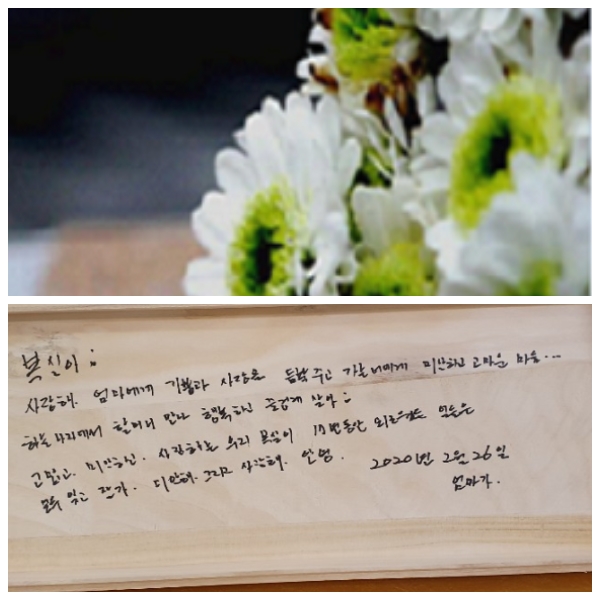 복실이:
사랑해. 엄마에게 기쁨과 사랑을 듬뿍 주고 가는 너에게 미안하고 고마운 마음...
하늘나라에서 할머니 만나 행복하고 즐겁게 살아:
고맙고. 미안하고. 사랑하는 우리 복실이 10년동안 외로웠던 일들은
모두 잊고 잘가. 미안해. 그리고 사랑해. 안녕.
2020년 2월 26일
엄마가.